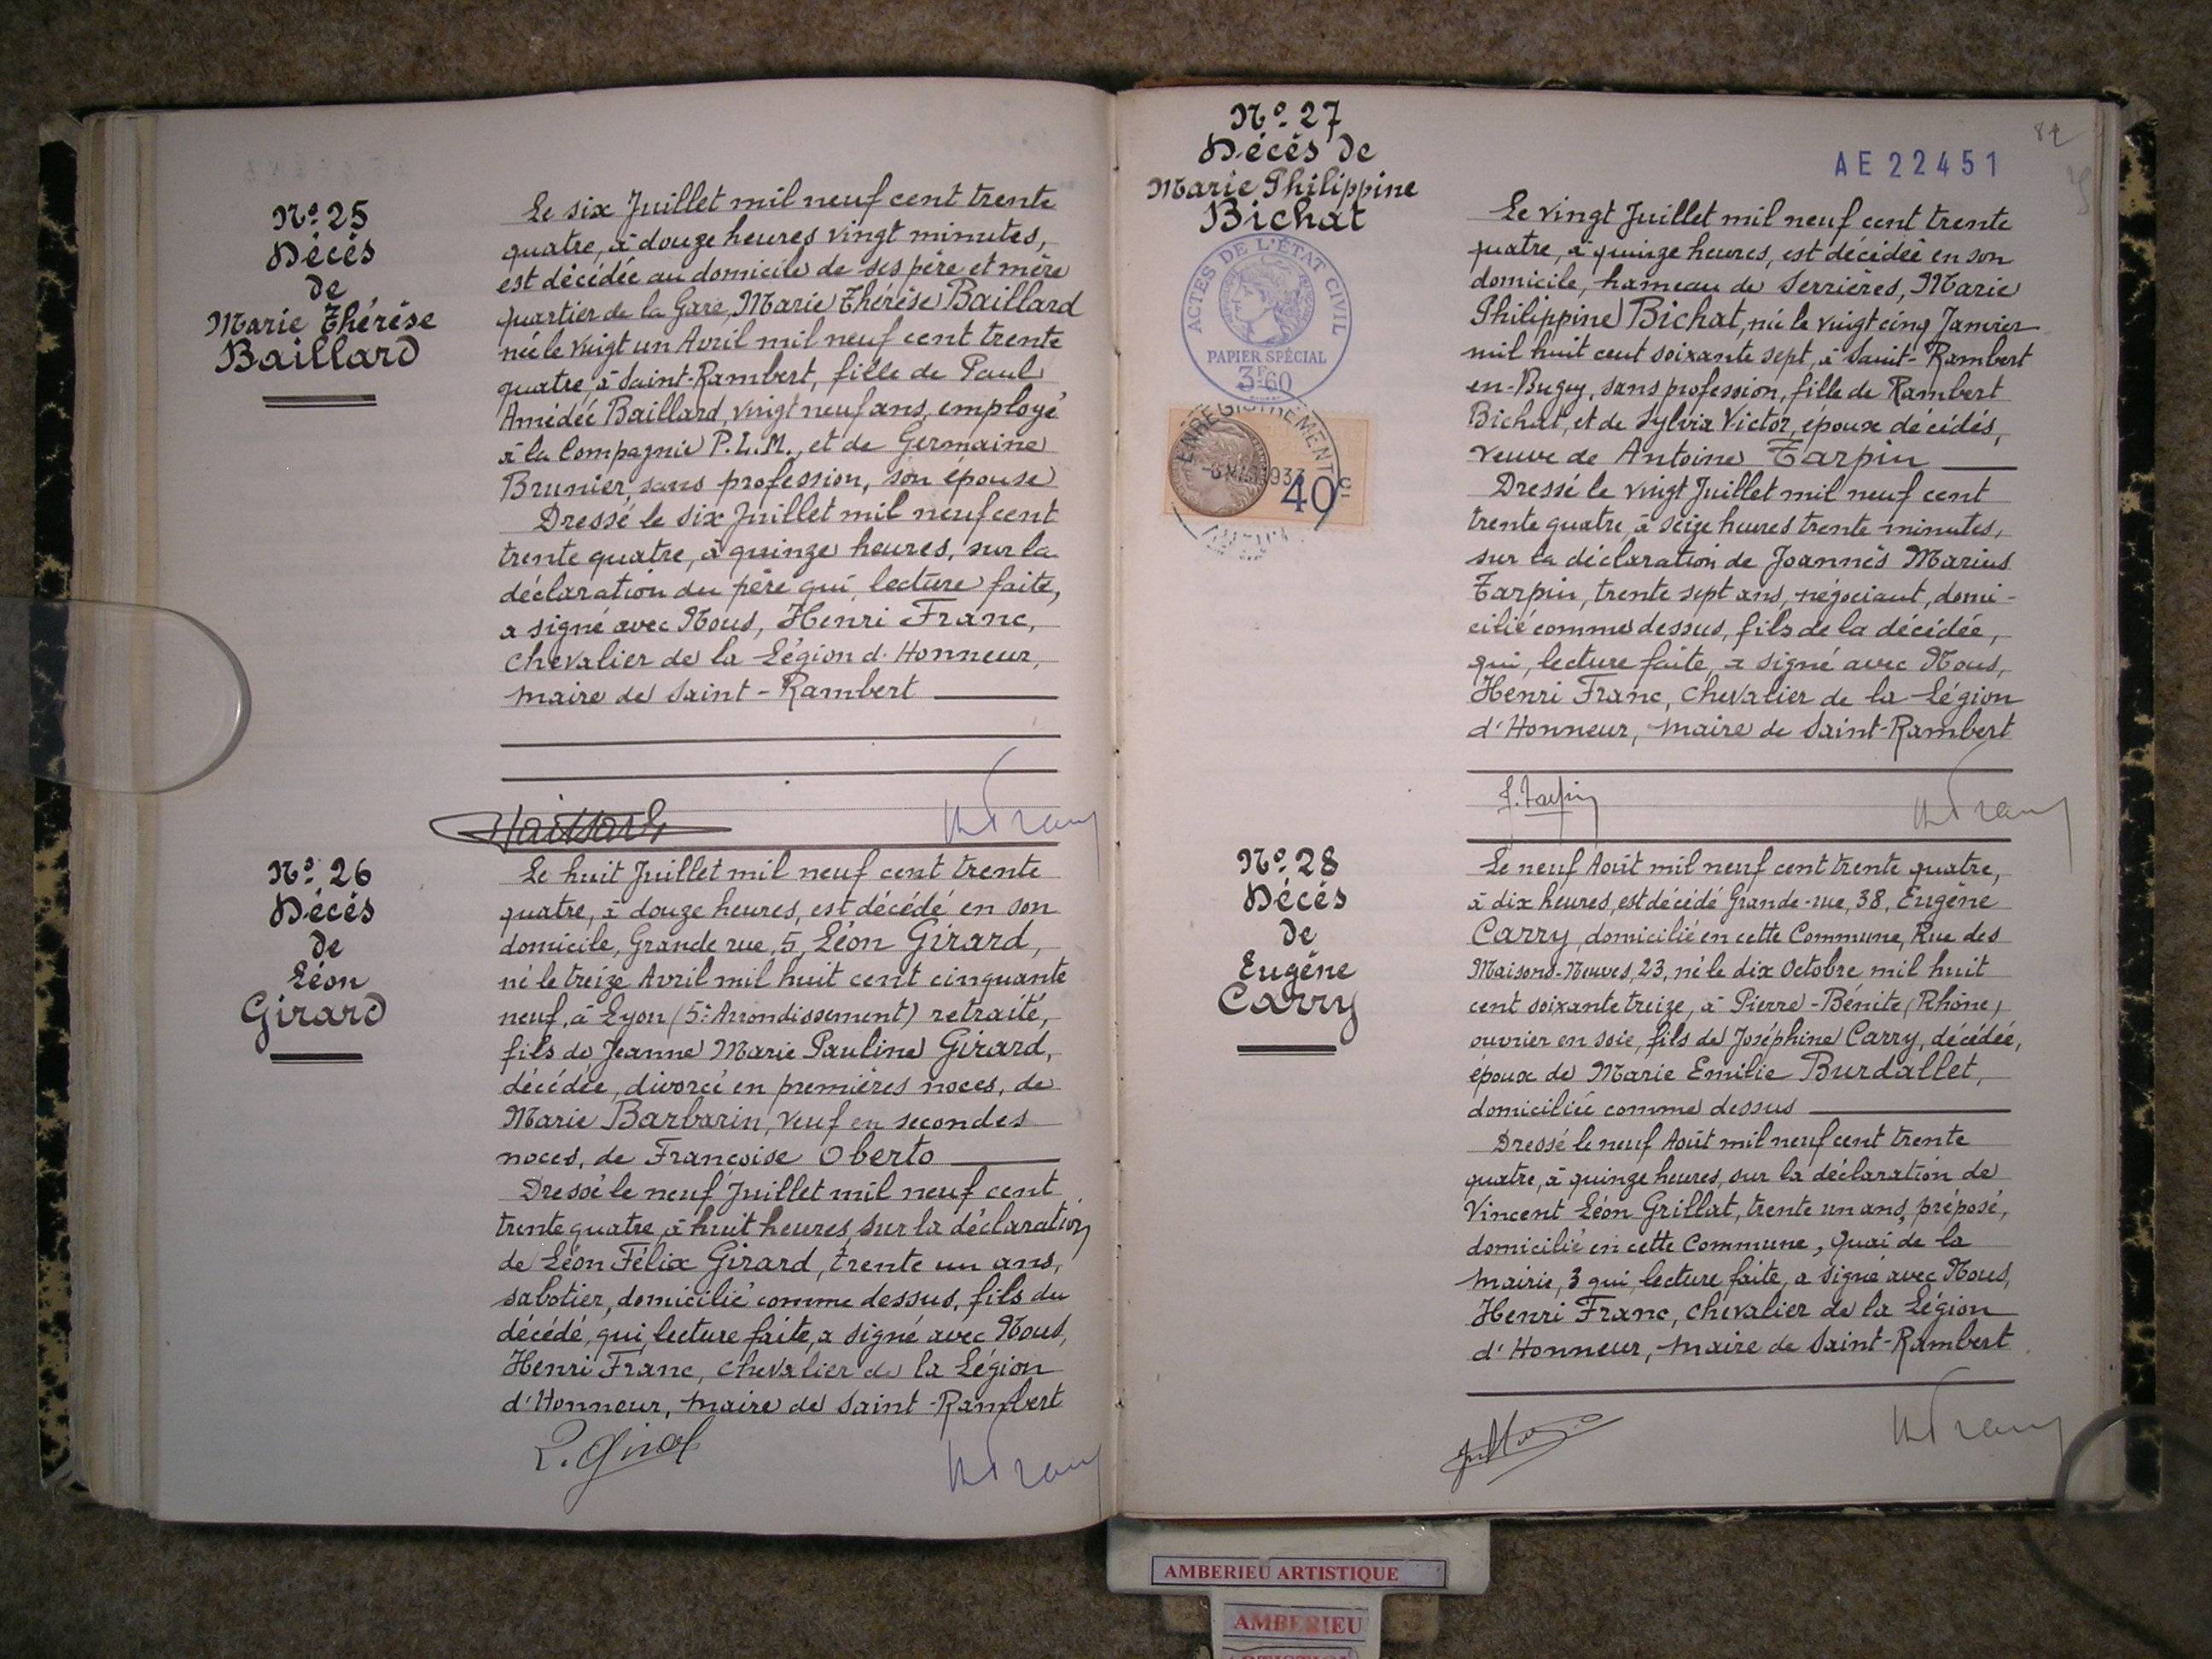 Nº 25
Décès
de
Marie Thérèse
Baillard
Le six Juillet mil neuf cent trente
quatre, à douze heures vingt minutes,
est décédée au domicile de ses père et mère
quartier de la Gare, Marie Thérèse Baillard
née le vingt un Avril mil neuf cent trente
quatre à Saint-Rambert, fille de Paul
Amédée Baillard, vingt neuf ans, employé
à la Compagnie P.L.M., et de Germaine
Brunier, sans profession, son épouse
Dressé le six Juillet mil neuf cent
trente quatre, à quinze heures, sur la
déclaration du père qui, lecture faite,
a signé avec Nous, Henri Franc,
Chevalier de la Légion d'Honneur,
maire de Saint-Rambert
Baillard
H Franc
Nº 26
Décès
de
Léon
Girard
Le huit Juillet mil neuf cent trente
quatre, à douze heures, est décédé en son
domicile, Grande rue, 5, Léon Girard,
né le treize Avril mil huit cent cinquante
neuf, à Lyon (5e Arrondissement) retraité,
fils de Jeanne Marie Pauline Girard,
décédée, divorcé en premières noces, de
Marie Barbarin, veuf en secondes
noces, de Françoise Oberto
Dressé le neuf Juillet mil neuf cent
trente quatre, à huit heures, sur la déclaration
de Léon Félix Girard, trente un ans,
sabotier, domicilié comme dessus, fils du
décédé, qui, lecture faite, a signé avec Nous,
Henri Franc, Chevalier de la Légion
d'Honneur, maire de Saint-Rambert
L. Girard
H Franc
Nº 27
Décès de
Marie Philippine
Bichat
ACTES DE L'ÉTAT CIVIL
PAPIER SPÉCIAL
3F60
ENREGISTREMENT
40c
82
AE 22451
Le vingt Juillet mil neuf cent trente
quatre, à quinze heures, est décédée en son
domicile, hameau de Serrières, Marie
Philippine Bichat, née le vingt cinq Janvier
mil huit cent soixante sept, à Saint-Rambert
en-Bugey, sans profession, fille de Rambert
Bichat, et de Sylvia Victor, époux décédés,
veuve de Antoine Tarpin
Dressé le vingt Juillet mil neuf cent
trente quatre, à seize heures trente minutes,
sur la déclaration de Joannès Marius
Tarpin, trente sept ans, négociant, domi-
cilié comme dessus, fils de la décédée,
qui, lecture faite, a signé avec Nous,
Henri Franc, Chevalier de la Légion
d'Honneur, maire de Saint-Rambert
J. Tarpin
H Franc
Nº 28
Décès
de
Eugène
Carry
Le neuf Août mil neuf cent trente quatre,
à dix heures, est décédé Grande-rue, 38, Eugène
Carry, domicilié en cette Commune, Rue des
Maisons-Neuves, 23, né le dix Octobre mil huit
cent soixante treize, à Pierre-Bénite (Rhône)
ouvrier en soie, fils de Joséphine Carry, décédée,
époux de Marie Emilie Burdallet,
domiciliée comme dessus
Dressé le neuf Août mil neuf cent trente
quatre, à quinze heures, sur la déclaration de
Vincent Léon Grillat, trente un ans, préposé,
domicilié en cette Commune, Quai de la
Mairie, 3 qui, lecture faite, a signé avec Nous,
Henri Franc, Chevalier de la Légion
d'Honneur, maire de Saint-Rambert
H Franc
AMBERIEU ARTISTIQUE
AMBERIEU
ARTISTIQUE